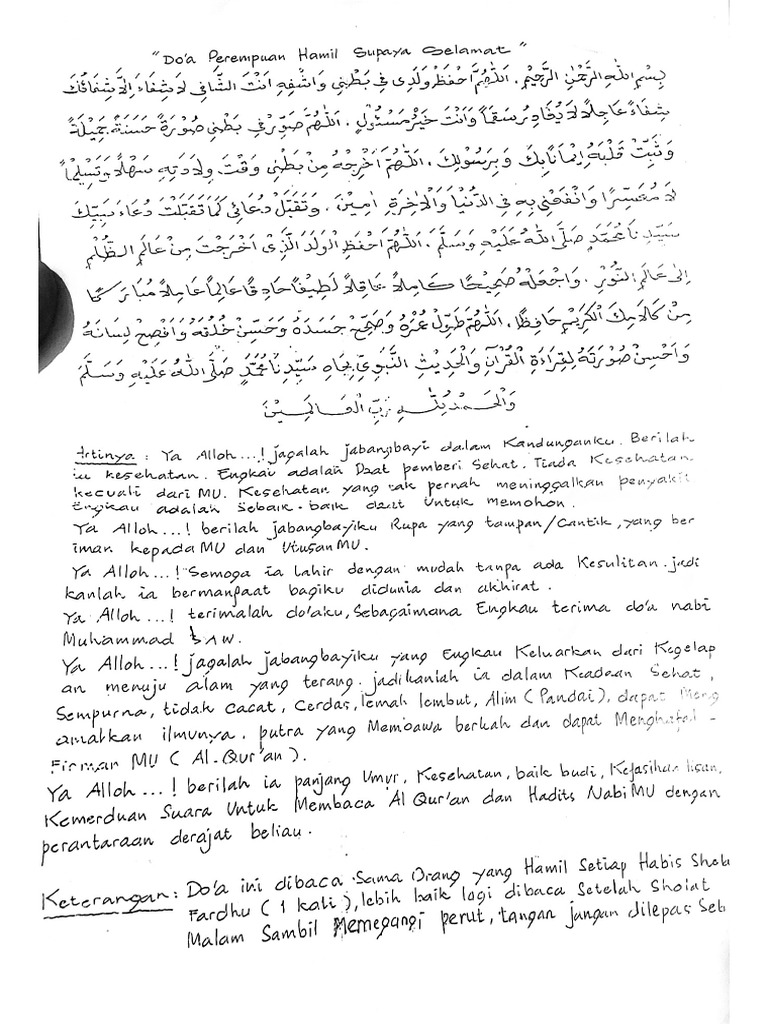 "Do'a Perempuan Hamil Supaya Selamat"
بِسْمِ اللهِ الرَّحْمٰنِ الرَّحِيْمِ . اَللّٰهُمَّ احْفَظْ وَلَدِى فِى بَطْنِى وَاشْفِهِ اَنْتَ الشَّافِى لَا شِفَاءَ اِلَّا شِفَائُكَ
شِفَاءً عَاجِلًا لَا يُغَادِرُ سَقَمًا وَاَنْتَ خَيْرُ مَسْئُوْلٍ . اَللّٰهُمَّ صَوِّرْ فِى بَطْنِى صُوْرَةً حَسَنَةً جَمِيْلَةً
وَثَبِّتْ قَلْبَهُ اِيْمَانًا بِكَ وَبِرَسُوْلِكَ . اَللّٰهُمَّ اَخْرِجْهُ مِنْ بَطْنِى وَقْتَ وِلَادَتِهِ سَهْلًا وَتَسْلِيْمًا
لَا مُعَسِّرًا وَانْفَعْنِى بِهِ فِى الدُّنْيَا وَالْاٰخِرَةِ اٰمِيْنَ . وَتَقَبَّلْ دُعَائِى كَمَا تَقَبَّلْتَ دُعَاءَ نَبِيِّكَ
سَيِّدِنَا مُحَمَّدٍ صَلَّى اللهُ عَلَيْهِ وَسَلَّمَ . اَللّٰهُمَّ احْفَظِ الْوَلَدَ الَّذِىْ اَخْرَجْتَ مِنْ عَالَمِ الظُّلْمِ
اِلٰى عَالَمِ النُّوْرِ . وَاجْعَلْهُ صَحِيْحًا كَامِلًا عَاقِلًا لَطِيْفًا حَاذِقًا عَالِمًا عَامِلًا مُبَارَكًا
مِنْ كَلَامِكَ الْكَرِيْمِ حَافِظًا . اَللّٰهُمَّ طَوِّلْ عُمْرَهُ وَصَحِّحْ جَسَدَهُ وَحَسِّنْ خُلُقَهُ وَافْصِحْ لِسَانَهُ
وَاَحْسِنْ صُوْرَتَهُ لِقِرَاءَةِ الْقُرْآنِ وَالْحَدِيْثِ النَّبَوِيِّ بِجَاهِ سَيِّدِنَا مُحَمَّدٍ صَلَّى اللهُ عَلَيْهِ وَسَلَّمَ
وَالْحَمْدُ لِلّٰهِ رَبِّ الْعَالَمِيْنَ
Artinya : Ya Alloh...! jagalah jabangbayi dalam Kandunganku. Berilah
ia kesehatan. Engkau adalah Dzat pemberi Sehat. Tiada Kesehatan
kecuali dari MU. Kesehatan yang tak pernah meninggalkan penyakit
Engkau adalah sebaik-baik dzat untuk memohon.
Ya Alloh...! berilah jabangbayiku Rupa yang tampan/Cantik, yang ber
iman kepada MU dan Utusan MU.
Ya Alloh...! Semoga ia lahir dengan mudah tanpa ada Kesulitan. jadi
kanlah ia bermanfaat bagiku didunia dan akhirat.
Ya Alloh...! terimalah do'aku, Sebagaimana Engkau terima do'a nabi
Muhammad SAW.
Ya Alloh...! jagalah jabangbayiku yang Engkau Keluarkan dari Kegelap
an menuju alam yang terang. jadikanlah ia dalam Keadaan Sehat,
Sempurna, tidak cacat, Cerdas, lemah lembut, Alim (Pandai), dapat Meng
amalkan ilmunya. putra yang Membawa berkah dan dapat Menghafal -
Firman MU (Al-Qur'an).
Ya Alloh...! berilah ia panjang Umur, Kesehatan, baik budi, Kefasihan lisan,
Kemerduan Suara Untuk Membaca Al Qur'an dan Hadits Nabi MU dengan
perantaraan derajat beliau.
Keterangan : Do'a ini dibaca Sama Orang yang Hamil Setiap Habis Shola
Fardhu (1 kali), lebih baik lagi dibaca Setelah Sholat
Malam Sambil Memegangi perut, tangan jangan dilepas Seb